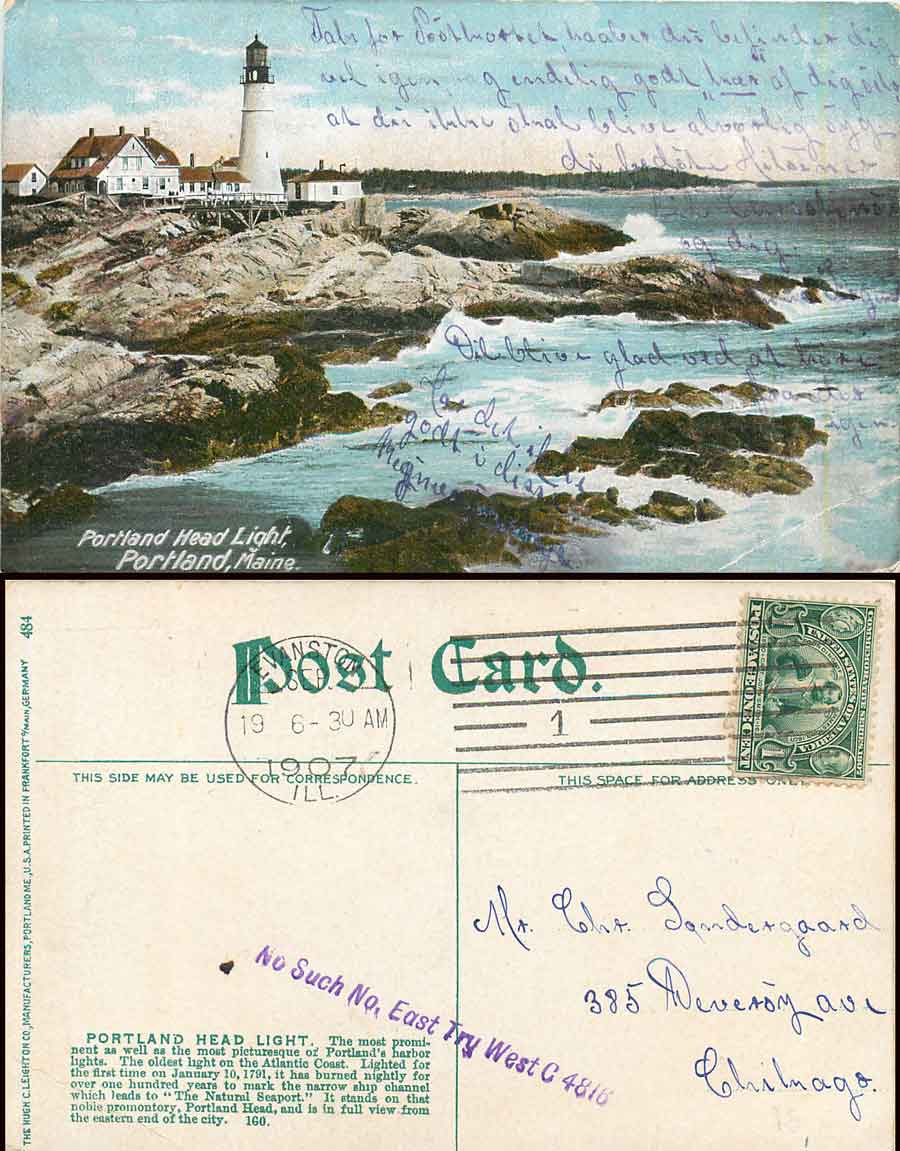 Tak for Postkortet, haaber du befinder dig
vel igen og endelig godt, af dig
at du ikke skal blive alvorlig syg
du bedste Hilsener
og dig.
Vil blive glad ved at höre
fra
igen
Har det
godt i
Portland Head Light,
Portland, Maine.
484
Post Card.
EVANSTON
SEP.
19 6-30 AM
1907
ILL.
1
UNITED STATES OF AMERICA
POSTAGE ONE CENT
1
1
THIS SIDE MAY BE USED FOR CORRESPONDENCE.
THIS SPACE FOR ADDRESS ONLY
THE HUGH C. LEIGHTON CO., MANUFACTURERS, PORTLAND ME., U.S.A. PRINTED IN FRANKFORT o/MAIN, GERMANY
Mr. Chr. Söndergaard
385 Deversöy ave
Chikago.
No Such No. East Try West C 4816
PORTLAND HEAD LIGHT. The most promi-
nent as well as the most picturesque of Portland's harbor
lights. The oldest light on the Atlantic Coast. Lighted for
the first time on January 10, 1791, it has burned nightly for
over one hundred years to mark the narrow ship channel
which leads to "The Natural Seaport." It stands on that
noble promontory, Portland Head, and is in full view from
the eastern end of the city. 160.